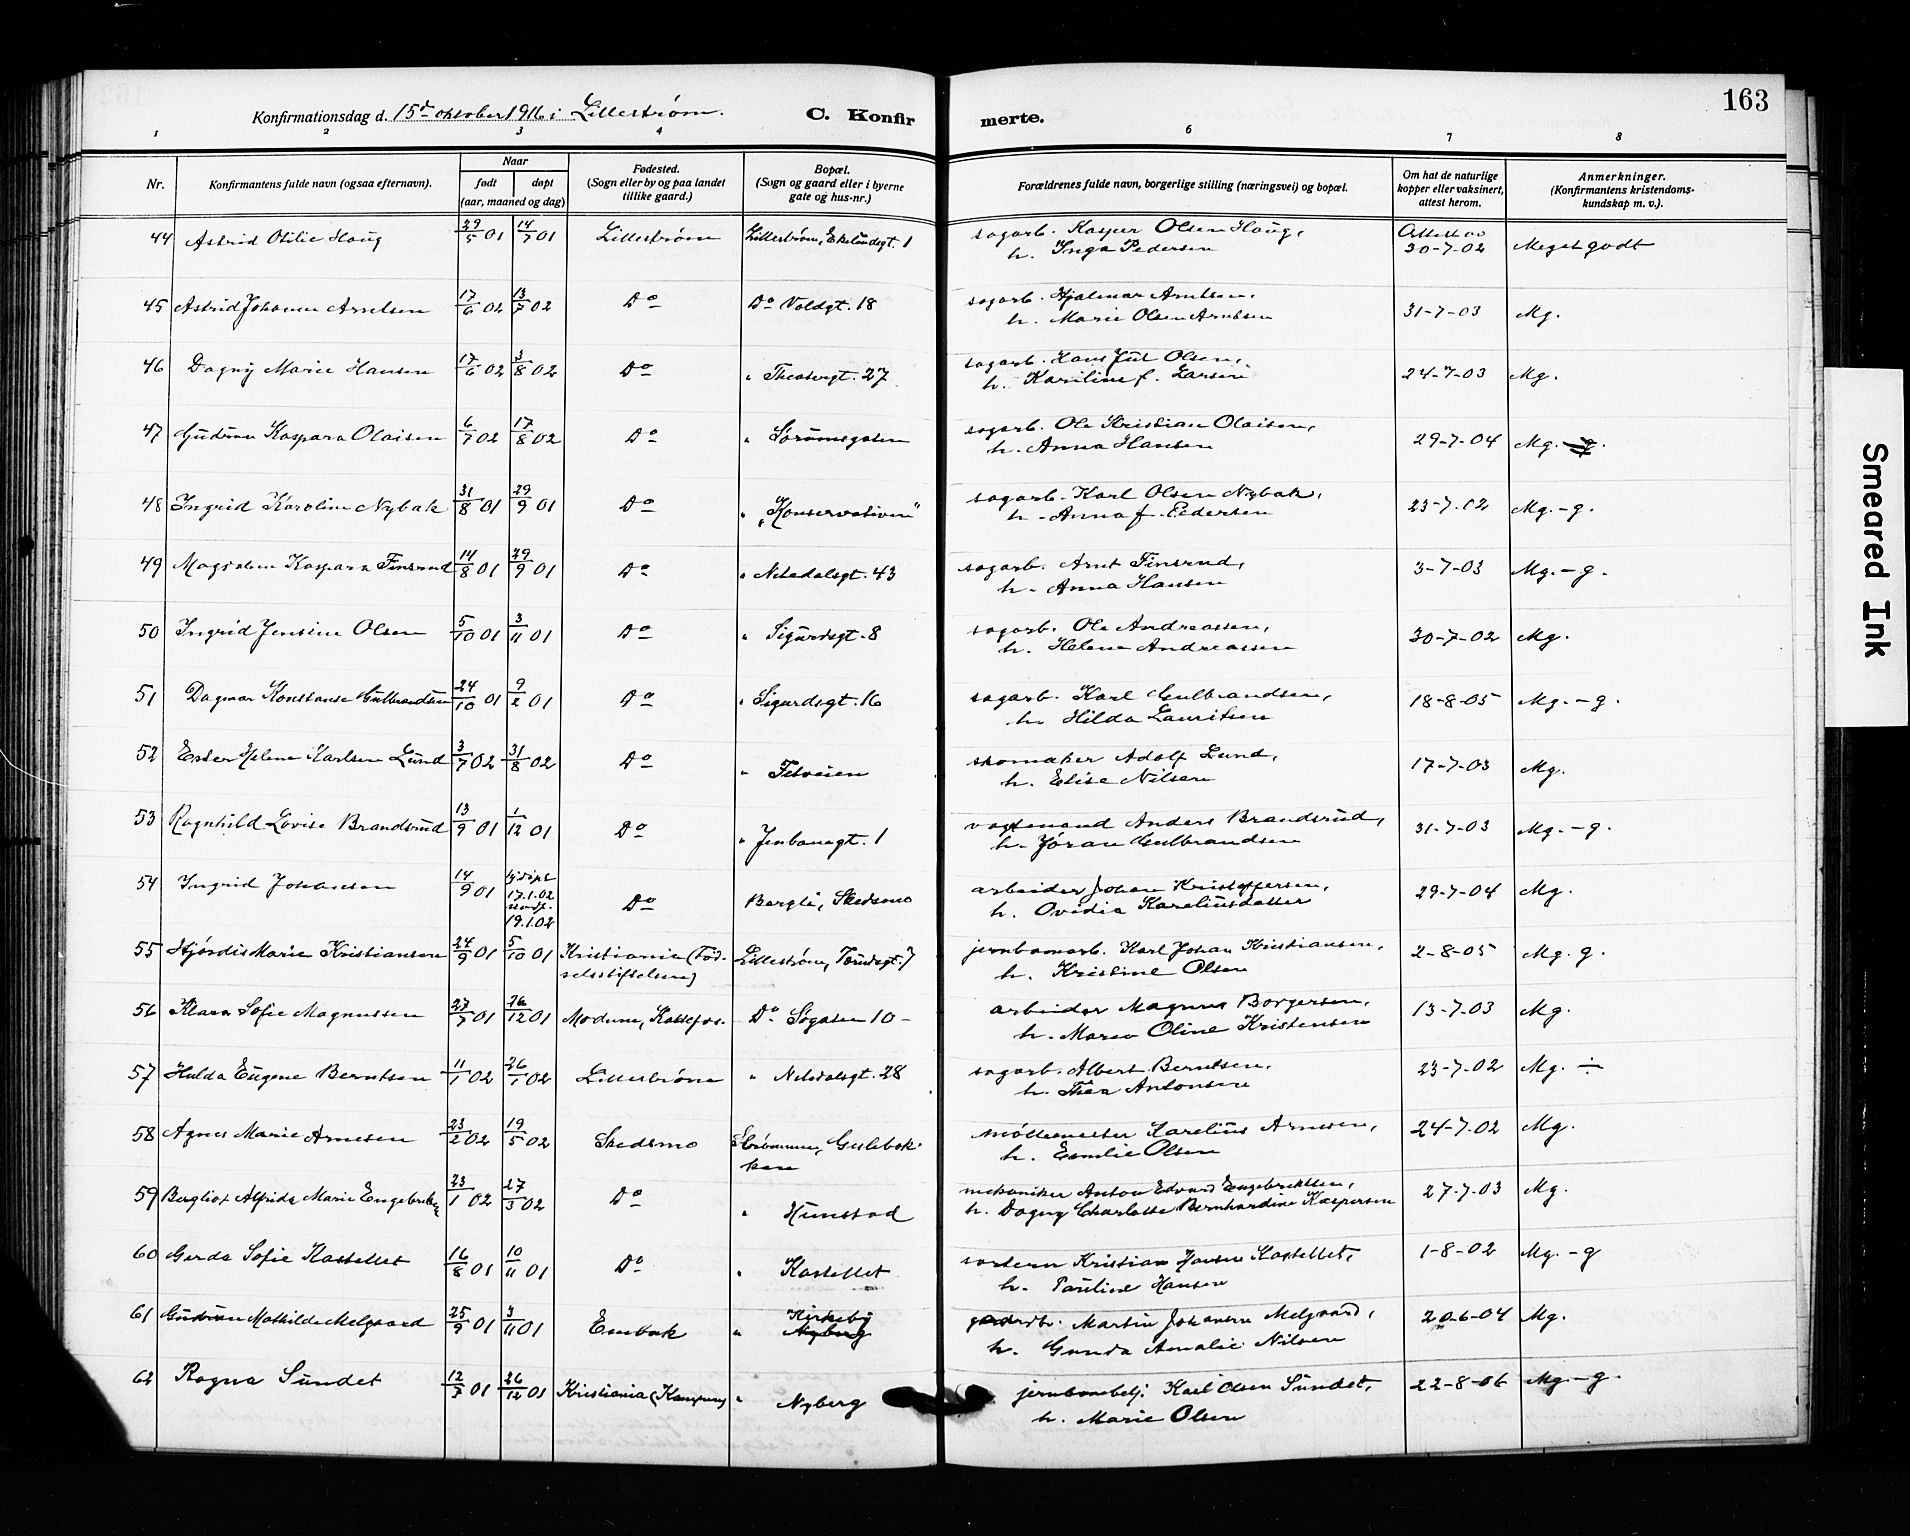 163
Konfirmationsdag d. 15de oktober 1916 i Lillestrøm.
C. Konfirmerte.
1 2 3 4 6 7 8
Nr. Konfirmantens fulde navn (ogsaa efternavn). Naar født døpt (aar, maaned og dag) Fødested. (Sogn eller by og paa landet tillike gaard.) Bopæl. (Sogn og gaard eller i byerne gate og hus-nr.) Forældrenes fulde navn, borgerlige stilling (næringsvei) og bopæl. Om hat de naturlige kopper eller vaksinert, attest herom. Anmerkninger. (Konfirmantens kristendoms-kundskap m. v.).
44 Astrid Otilie Haug 29/5 01 14/7 01 Lillestrøm Lillestrøm, Ekelundsgt. 1 sagarb. Kasper Olsen Haug, Attest av
h. Inga Pedersen 30-7-02 Meget godt
45 Astrid Johanne Arntsen 17/6 02 13/7 02 Do Do Voldgt. 18 sagarb. Hjalmar Arntsen,
h. Marie Olsen Arntsen 31-7-03 Mg.
46 Dagny Marie Hansen 17/6 02 3/8 02 Do " Theatergt. 27 sagarb. Hans Jul Olsen,
h. Karoline f. Larsen 24-7-03 Mg.
47 Gudrun Kaspara Olaisen 6/7 02 17/8 02 Do " Sørumsgaten sagarb. Ole Kristian Olaisen,
h. Anna Hansen 29-7-04 Mg.
48 Ingrid Karoline Nybak 31/8 01 29/9 01 Do " "Konservativen" sagarb. Karl Olsen Nybak,
h. Anna f. Pedersen 23-7-02 Mg. - g.
49 Magdalene Kaspara Finsrud 14/8 01 29/9 01 Do " Nitedalsgt. 43 sagarb. Arnt Finsrud,
h. Anna Hansen 3-7-03 Mg. - g.
50 Ingrid Jensine Olsen 5/10 01 3/11 01 Do " Sigurdsgt. 8 sagarb. Ole Andreassen,
h. Helene Andreassen 30-7-02 Mg.
51 Dagmar Konstanse Gulbrandsen 24/10 01 9/2 01 Do " Sigurdsgt. 16 sagarb. Karl Gulbrandsen,
h. Hilda Lauritsen 18-8-05 Mg. - g.
52 Ester Helene Karlsen Lund 3/7 02 31/8 02 Do " Fetveien skomaker Adolf Lund,
h. Elise Nilsen 17-7-03 Mg.
53 Ragnhild Lovise Brandsrud 13/9 01 1/12 01 Do " Jernbanegt. 1 vogtmand Anders Brandsrud,
h. Jøran Gulbrandsen 31-7-03 Mg. - g.
54 Ingrid Johansen 14/9 01 hj.døpt 17.1.02 stadf. 19.1.02 Do Bergli, Skedsmo arbeider Johan Kristoffersen,
h. Ovidia Kareliusdatter 29-7-04 Mg.
55 Hjørdis Marie Kristiansen 24/9 01 5/10 01 Kristiania (Fød- Lillestrøm, Torvegt. 7 jernbanearb. Karl Johan Kristiansen,
selsstiftelsen) h. Kristine Olsen 2-8-05 Mg. g.
56 Klara Sofie Magnussen 27/7 01 26/12 01 Modum, Katfos. Do Søgaten 10 - arbeider Magnus Borgersen,
h. Maren Oline Kristensen 13-7-03 Mg.
57 Hulda Eugene Berntsen 11/1 02 26/1 02 Lillestrøm " Nitedalsgt. 28 sagarb. Albert Berntsen,
h. Thea Antonsen 23-7-02 Mg. ÷
58 Agnes Marie Arnesen 23/2 02 19/5 02 Skedsmo Strømmen, Guslebak- møllemester Karelius Arnesen,
ken h. Emilie Olsen 24-7-02 Mg.
59 Bergliot Alfrida Marie Engebretsen 23/1 02 27/3 02 Do " Humstad mekaniker Anton Edvard Engebretsen,
h. Dagny Charlotte Bernhardine Kaspersen 27-7-03 Mg.
60 Gerda Sofie Kastellet 16/8 01 10/11 01 Do " Kastellet sorterer Kristian Jensen Kastellet,
h. Pauline Hansen 1-8-02 Mg. - g
61 Gudrun Mathilde Melgaard 25/9 01 3/11 01 Enebak " Kirkeby Nyberg gaardbr. Martin Johansen Melgaard,
h. Gunda Amalie Nilsen 20-6-04 Mg.
62 Ragna Sundet 12/7 01 26/12 01 Kristiania (Kampen) " Nyberg jernbanebetj. Karl Olsen Sundet,
h. Marie Olsen 22-8-06 Mg. - g.
Smeared Ink